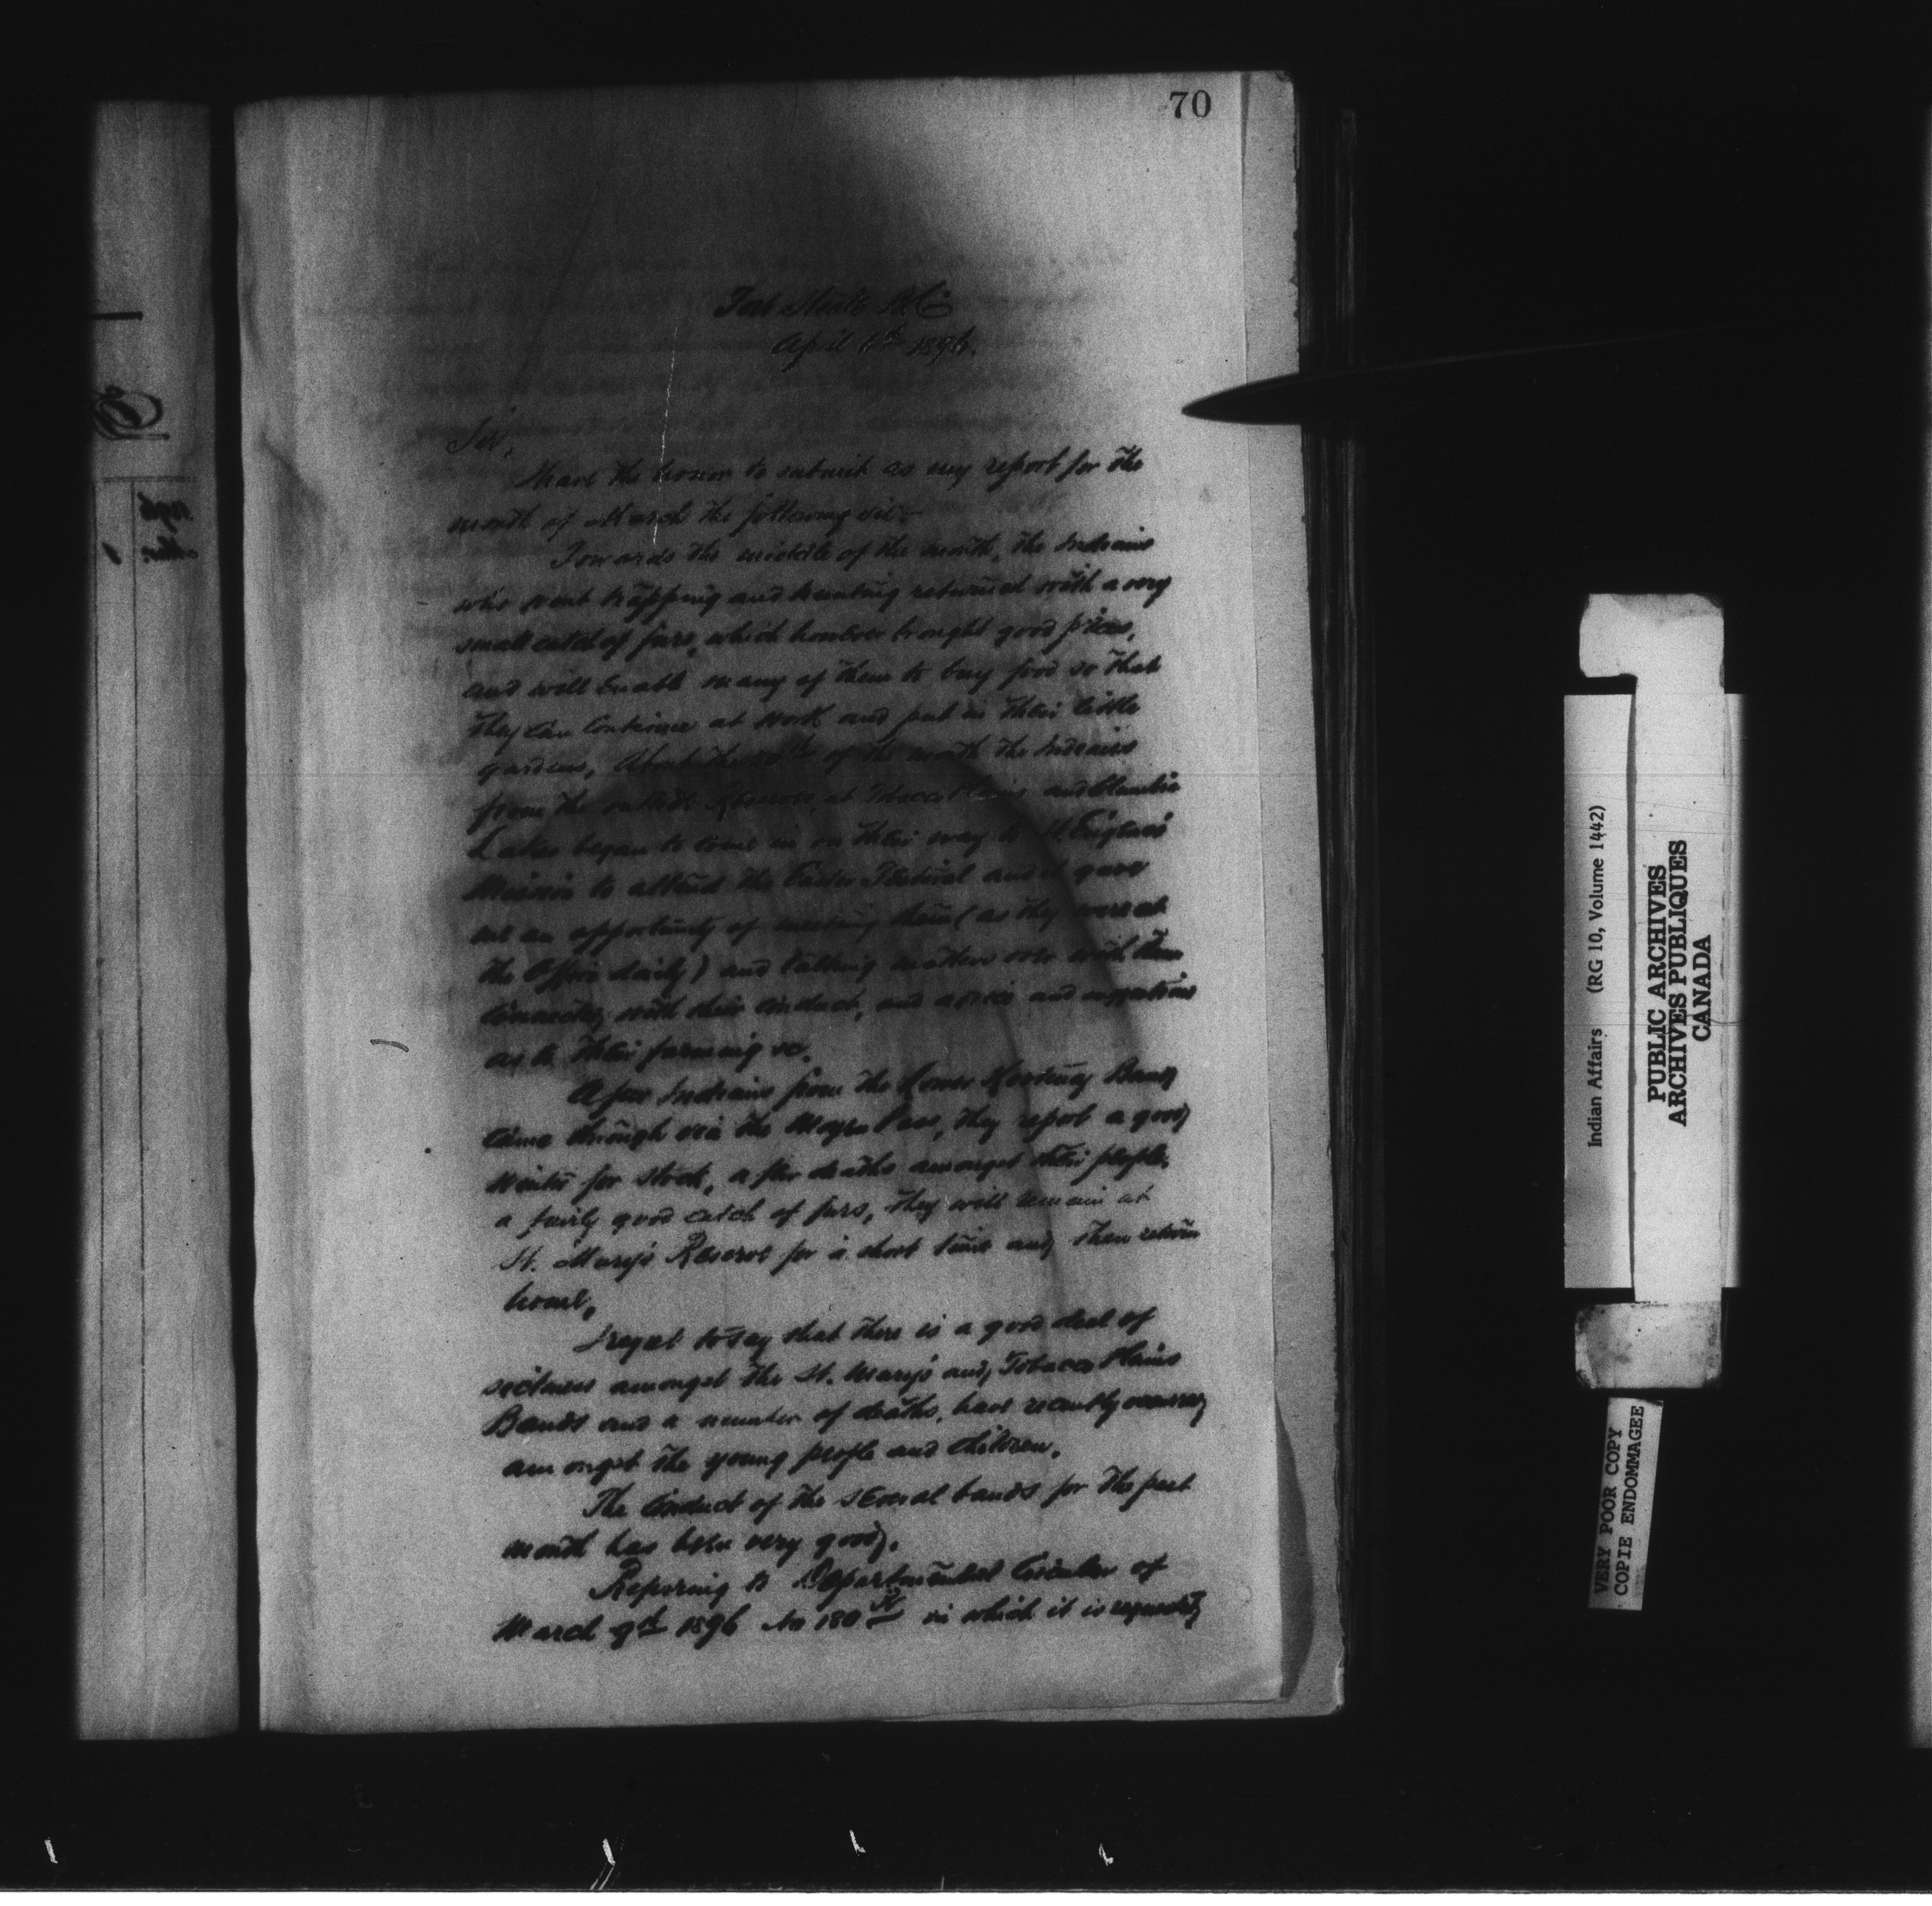 70
Fort Steele B.C.
April 6th 1896.
Sir,
I have the honor to submit as my report for the
month of March the following viz:-
Towards the middle of the month, the Indians
who went trapping and hunting returned with a very
small catch of furs, which however brought good prices,
and will enable many of them to buy food so that
they can continue at work and put in their little
gardens, About the of the month the Indians
from the outside Reserves at Tobacco Plains and Columbia
Lakes began to come in on their way to St Eugene's
Mission to attend the Easter Festival and it gave
me an opportunity of meeting them (as they were at
the Office daily) and talking matters over with them
connected with their conduct, and advice and suggestions
as to their farming &c.
A few Indians from the Lower Kootenay Band
came through via the Moyea Pass, they report a good
winter for stock, a few deaths amongst their people,
a fairly good catch of furs, they will remain at
St. Mary's Reserve for a short time and then return
home,
I regret to say that there is a good deal of
sickness amongst the St. Mary's and Tobacco Plains
Bands and a number of deaths, have recently occurred
amongst the young people and children.
The conduct of the several bands for the past
month has been very good.
Referring to Departmental Circular of
March 9th 1896 No 180 in which it is requested
1896
Mar. 1
Indian Affairs (RG 10, Volume 1442)
PUBLIC ARCHIVES
ARCHIVES PUBLIQUES
CANADA
VERY POOR COPY
COPIE ENDOMMAGEE